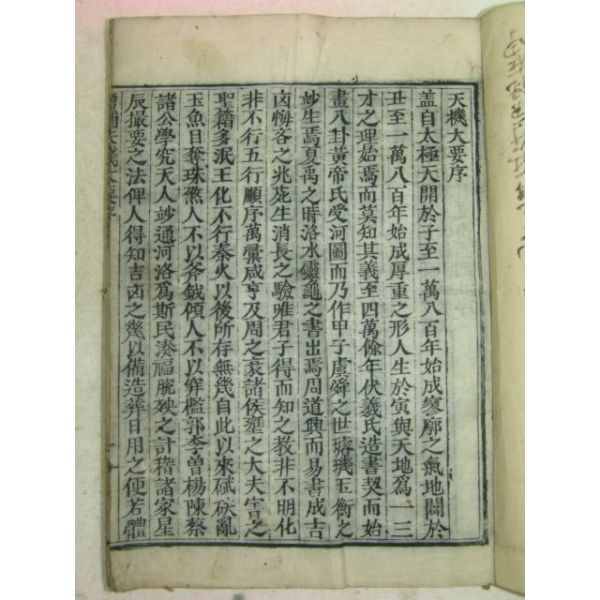 天機大要序
盖自太極天開於子至一萬八百年始成寥廓之氣地闢於
丑至一萬八百年始成厚重之形人生於寅與天地爲一三
才之理始焉而莫知其義至四萬餘年伏羲氏造書契而始
畫八卦黃帝氏受河圖而乃作甲子虞舜之世璿璣玉衡之
妙生焉夏禹之時洛水靈龜之書出焉周道興而易書成吉
凶悔吝之兆旄生消長之驗唯君子得而知之教非不明化
非不行五行順序萬彙咸亨及周之衰諸侯壅之大夫害之
聖籍多泯王化不行秦火以後所存無幾自此以來碔砆亂
玉魚目奪珠煞人不以斧鉞傾人不以穽檻郭李曾楊陳蔡
諸公學究天人妙通河洛爲斯民湊福脫殃之計稡諸家星
辰撮要之法俾人得知吉凶之幾以備造葬日用之便若體
增補天機大要序